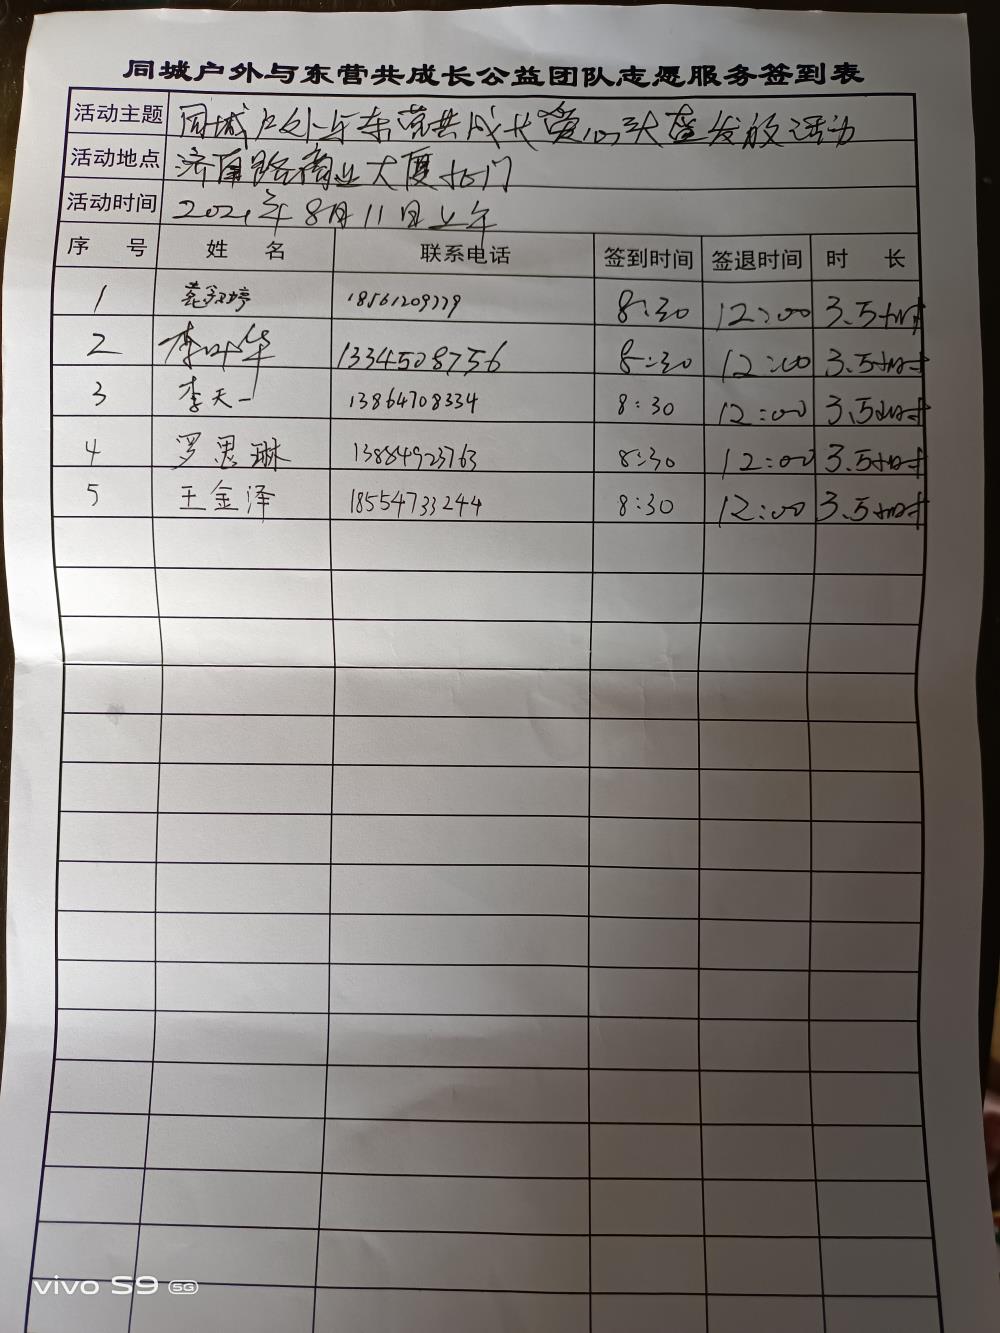 同城户外与东营共成长公益团队志愿服务签到表
活动主题 同城户外与东营共成长爱心头盔发放活动
活动地点 济南路商业大厦北门
活动时间 2021年8月11日上午
序号 姓名 联系电话 签到时间 签退时间 时长
1 18561209779 8:30 12:00 3.5小时
2 李叶华 13345087756 8:30 12:00 3.5小时
3 李天一 13864708334 8:30 12:00 3.5小时
4 罗思琳 13884923763 8:30 12:00 3.5小时
5 王金泽 18554733244 8:30 12:00 3.5小时
vivo S9 5G